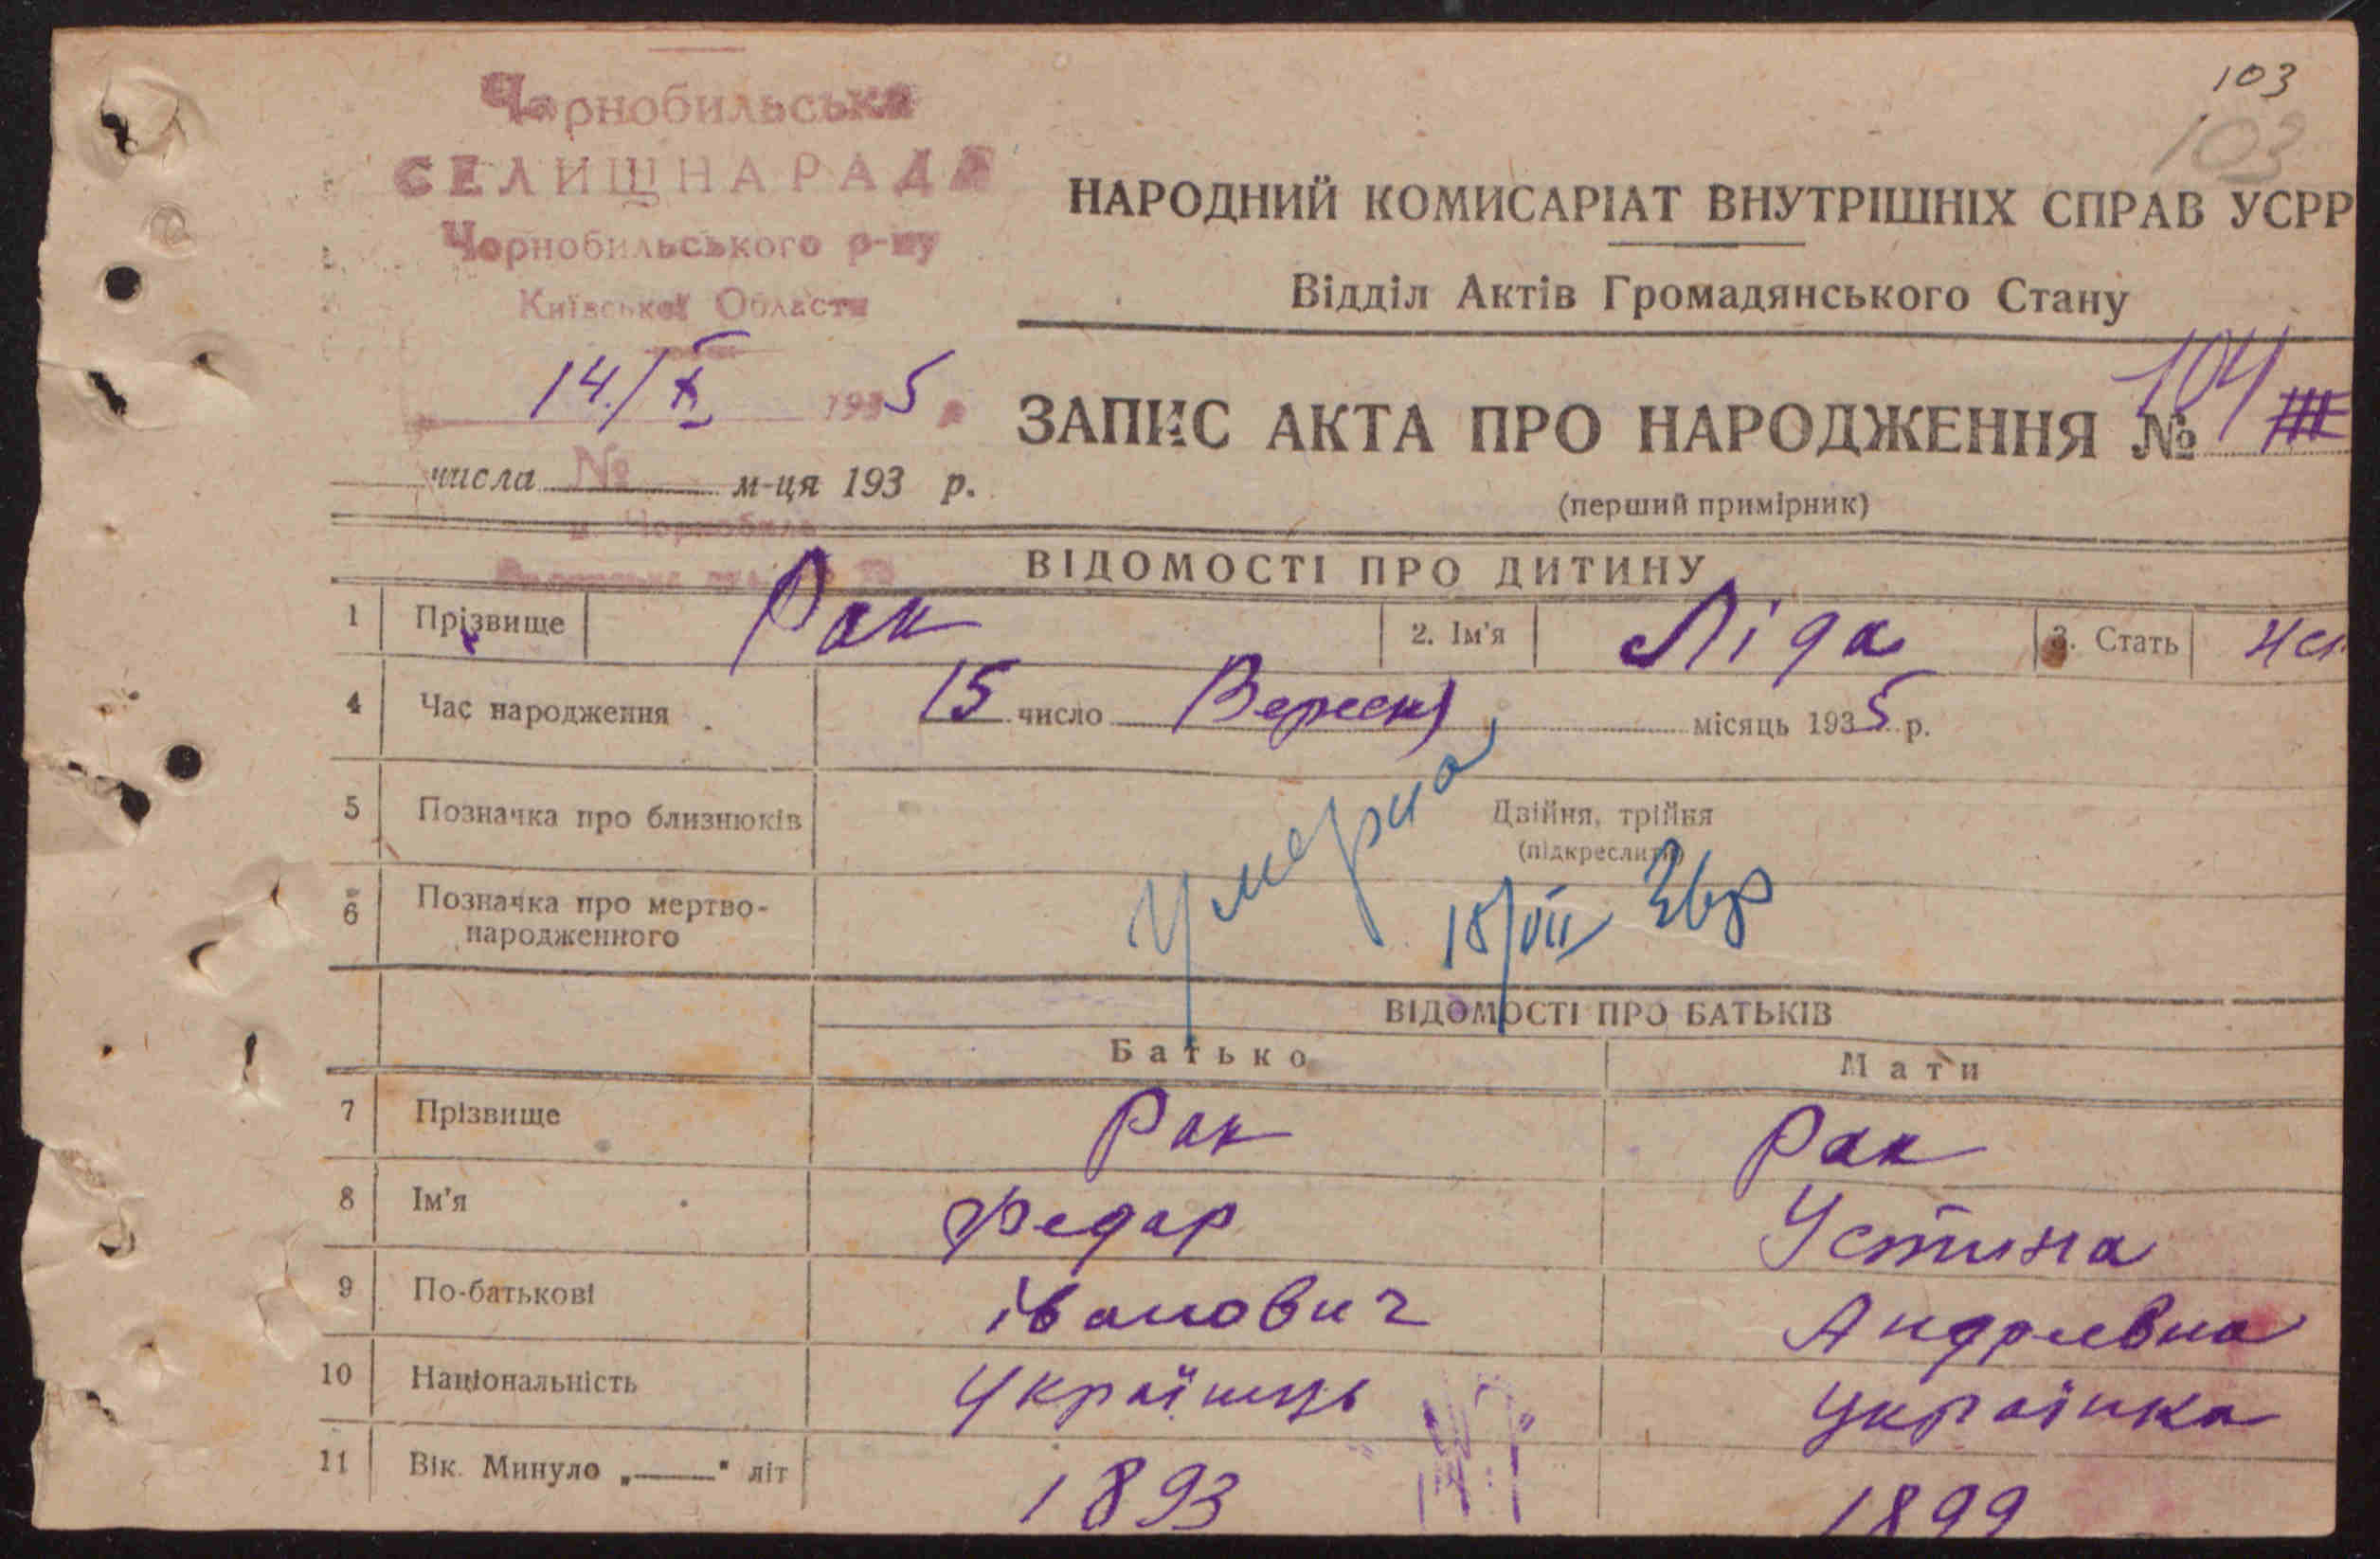 103
103
Чорнобильська
СЕЛИЩНА РАДА
Чорнобильського р-ну
Київської Области
14/X 1935 р
№
м. Чорнобиль
НАРОДНИЙ КОМИСАРІАТ ВНУТРІШНІХ СПРАВ УСРР
Відділ Актів Громадянського Стану
ЗАПИС АКТА ПРО НАРОДЖЕННЯ № 104
числа м-ця 193 р.
(перший примірник)
ВІДОМОСТІ ПРО ДИТИНУ
1 Прізвище Рак 2. Ім'я Ліда 3. Стать
4 Час народження 15 число Вересня місяць 1935 р.
5 Позначка про близнюків Двійня, трійня
(підкреслити)
6 Позначка про мертво-
народженного
Умерла
18/VII 36р
ВІДОМОСТІ ПРО БАТЬКІВ
Батько Мати
7 Прізвище Рак Рак
8 Ім'я Федар Устина
9 По-батькові іванович Андреевна
10 Національність Українць Українка
11 Вік. Минуло „——" літ 1893 1899